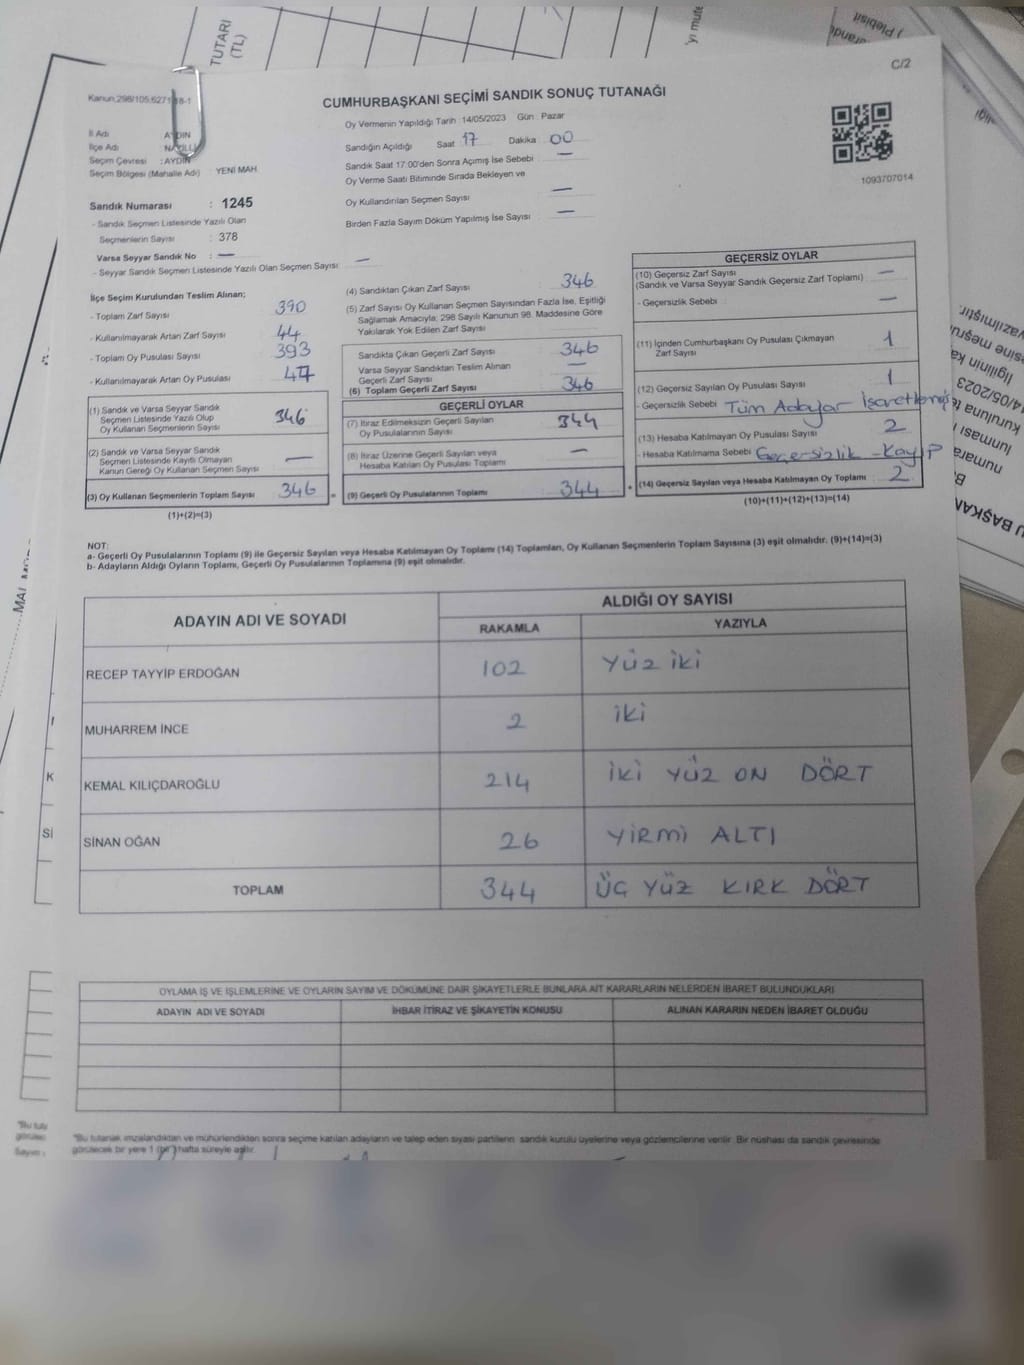 TUTARI
(TL)
C/2
Kanun,298/105,6271/18-1
CUMHURBAŞKANI SEÇİMİ SANDIK SONUÇ TUTANAĞI
Oy Vermenin Yapıldığı Tarih : 14/05/2023 Gün : Pazar
İl Adı AYDIN
Sandığın Açıldığı Saat 17 Dakika 00
İlçe Adı NAZİLLİ
Seçim Çevresi : AYDIN
Sandık Saat 17:00'den Sonra Açımış İse Sebebi —
Seçim Bölgesi (Mahalle Adı) : YENİ MAH.
Oy Verme Saati Bitiminde Sırada Bekleyen ve
Oy Kullandırılan Seçmen Sayısı —
1093707014
Sandık Numarası : 1245
Birden Fazla Sayım Döküm Yapılmış İse Sayısı —
- Sandık Seçmen Listesinde Yazılı Olan
Seçmenlerin Sayısı : 378
Varsa Seyyar Sandık No : —
- Seyyar Sandık Seçmen Listesinde Yazılı Olan Seçmen Sayısı : —
İlçe Seçim Kurulundan Teslim Alınan;
- Toplam Zarf Sayısı 390
- Kullanılmayarak Artan Zarf Sayısı 44
- Toplam Oy Pusulası Sayısı 393
- Kullanılmayarak Artan Oy Pusulası 47
(1) Sandık ve Varsa Seyyar Sandık
Seçmen Listesinde Yazılı Olup
Oy Kullanan Seçmenlerin Sayısı 346
(2) Sandık ve Varsa Seyyar Sandık
Seçmen Listesinde Kayıtlı Olmayan
Kanun Gereği Oy Kullanan Seçmen Sayısı —
(3) Oy Kullanan Seçmenlerin Toplam Sayısı 346
(1)+(2)=(3)
(4) Sandıktan Çıkan Zarf Sayısı : 346
(5) Zarf Sayısı Oy Kullanan Seçmen Sayısından Fazla İse, Eşitliği
Sağlamak Amacıyla; 298 Sayılı Kanunun 98. Maddesine Göre
Yakılarak Yok Edilen Zarf Sayısı
Sandıkta Çıkan Geçerli Zarf Sayısı : 346
Varsa Seyyar Sandıktan Teslim Alınan
Geçerli Zarf Sayısı —
(6) Toplam Geçerli Zarf Sayısı : 346
GEÇERLİ OYLAR
(7) İtiraz Edilmeksizin Geçerli Sayılan
Oy Pusulalarının Sayısı 344
(8) İtiraz Üzerine Geçerli Sayılan veya
Hesaba Katılan Oy Pusulası Toplamı —
(9) Geçerli Oy Pusulalarının Toplamı 344
GEÇERSİZ OYLAR
(10) Geçersiz Zarf Sayısı : —
(Sandık ve Varsa Seyyar Sandık Geçersiz Zarf Toplamı)
- Geçersizlik Sebebi : —
(11) İçinden Cumhurbaşkanı Oy Pusulası Çıkmayan
Zarf Sayısı 1
(12) Geçersiz Sayılan Oy Pusulası Sayısı : 1
- Geçersizlik Sebebi Tüm Adaylar
(13) Hesaba Katılmayan Oy Pusulası Sayısı : 2
- Hesaba Katılmama Sebebi : Geçersizlik - Kayıp
(14) Geçersiz Sayılan veya Hesaba Katılmayan Oy Toplamı : 2
(10)+(11)+(12)+(13)=(14)
NOT:
a- Geçerli Oy Pusulalarının Toplamı (9) ile Geçersiz Sayılan veya Hesaba Katılmayan Oy Toplamı (14) Toplamları, Oy Kullanan Seçmenlerin Toplam Sayısına (3) eşit olmalıdır. (9)+(14)=(3)
b- Adayların Aldığı Oyların Toplamı, Geçerli Oy Pusulalarının Toplamına (9) eşit olmalıdır.
ADAYIN ADI VE SOYADI ALDIĞI OY SAYISI
RAKAMLA YAZIYLA
RECEP TAYYİP ERDOĞAN 102 YÜZ İKİ
MUHARREM İNCE 2 İKİ
KEMAL KILIÇDAROĞLU 214 İKİ YÜZ ON DÖRT
SİNAN OĞAN 26 YİRMİ ALTI
TOPLAM 344 ÜÇ YÜZ KIRK DÖRT
OYLAMA İŞ VE İŞLEMLERİNE VE OYLARIN SAYIM VE DÖKÜMÜNE DAİR ŞİKAYETLERLE BUNLARA AİT KARARLARIN NELERDEN İBARET BULUNDUKLARI
ADAYIN ADI VE SOYADI İHBAR İTİRAZ VE ŞİKAYETİN KONUSU ALINAN KARARIN NEDEN İBARET OLDUĞU
*Bu tutanak imzalandıktan ve mühürlendikten sonra seçime katılan adayların ve talep eden siyasi partilerin sandık kurulu üyelerine veya gözlemcilerine verilir. Bir nüshası da sandık çevresinde
görülecek bir yere 1 (bir) hafta süreyle asılır.